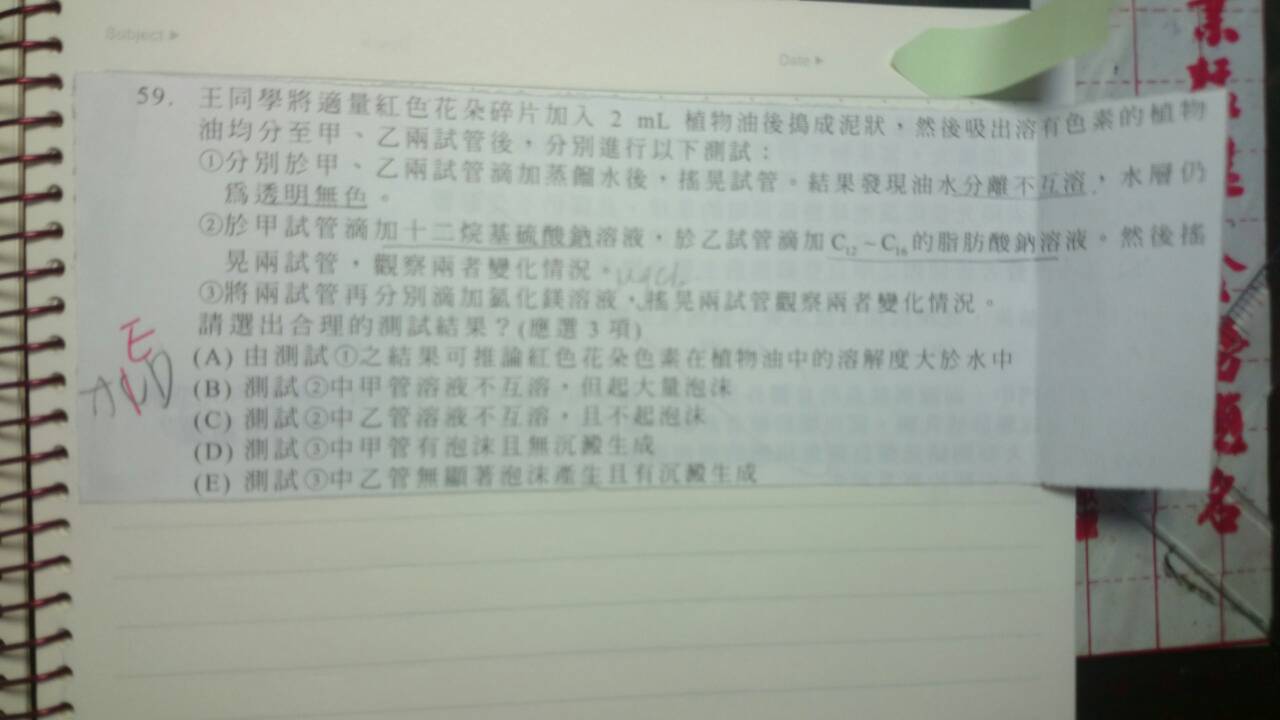 Subject ▸
Date ▸
59. 王同學將適量紅色花朵碎片加入 2 mL 植物油後搗成泥狀，然後吸出溶有色素的植物
油均分至甲、乙兩試管後，分別進行以下測試：
①分別於甲、乙兩試管滴加蒸餾水後，搖晃試管。結果發現油水分離不互溶，水層仍
為透明無色。
②於甲試管滴加十二烷基硫酸鈉溶液，於乙試管滴加C₁₂~C₁₆的脂肪酸鈉溶液。然後搖
晃兩試管，觀察兩者變化情況。
③將兩試管再分別滴加氯化鎂溶液，搖晃兩試管觀察兩者變化情況。
請選出合理的測試結果？(應選 3 項)
(A) 由測試①之結果可推論紅色花朵色素在植物油中的溶解度大於水中
(B) 測試②中甲管溶液不互溶，但起大量泡沫
(C) 測試②中乙管溶液不互溶，且不起泡沫
(D) 測試③中甲管有泡沫且無沉澱生成
(E) 測試③中乙管無顯著泡沫產生且有沉澱生成
E
題名